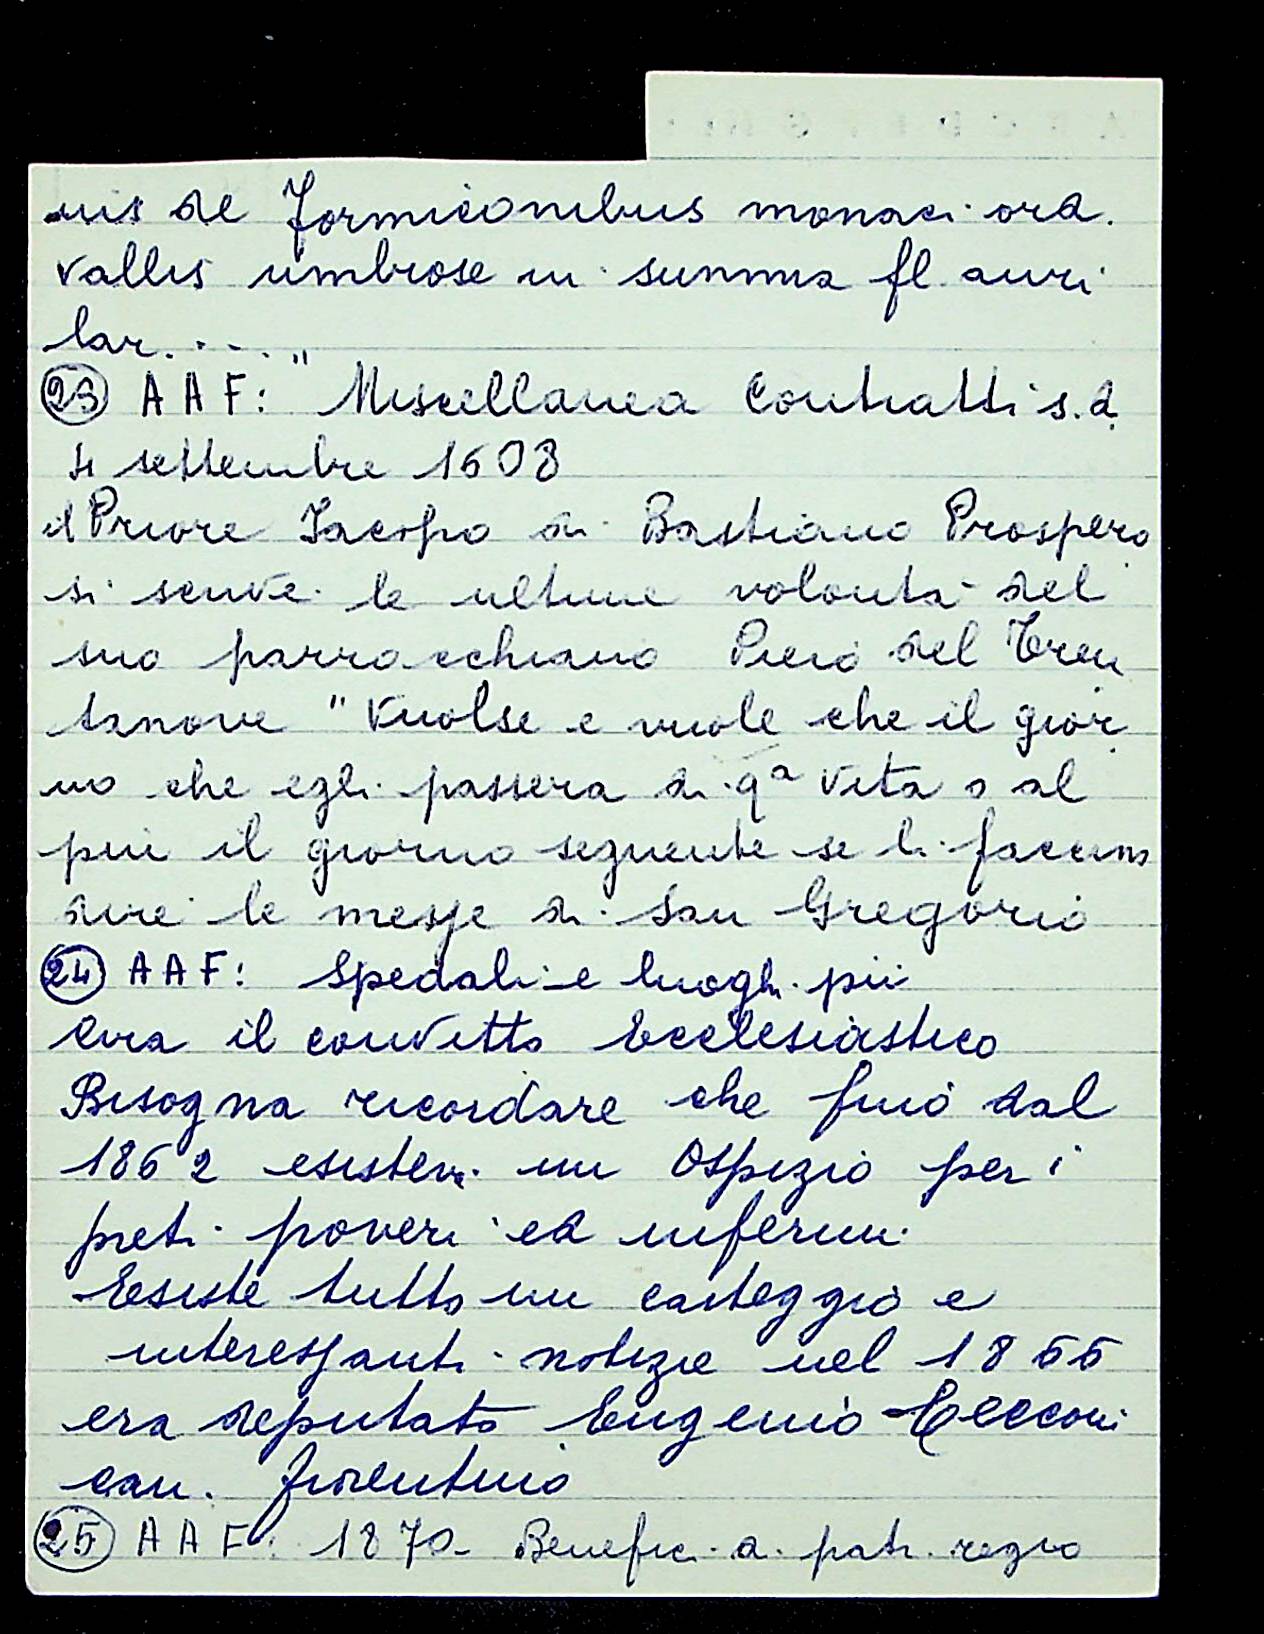 nis de Formiconibus monaci ord.
vallis umbrose in summa fl. auri
lar....."
23 AAF: "Miscellanea Contratti s.d.
4 settembre 1608
il Priore Iacopo di Bastiano Prospero
si scrive le ultime volontà del
suo parrocchiano Piero del Tren
tanove "Vuolse e vuole che il gior
no che egli passera di qª vita o al
piu il giorno seguente se li faccino
dire le messe di San Gregorio
24 AAF: Spedali e luoghi pii
c'era il convitto Ecclesiastico
Bisogna ricordare che fino dal
1862 esisteva un Ospizio per i
preti poveri ed infermi.
Esiste tutto un carteggio e
interessanti notizie nel 1866
era deputato Eugenio Cecconi
can. fiorentino
25 AAF: 1870 - Benefici a patr. regio